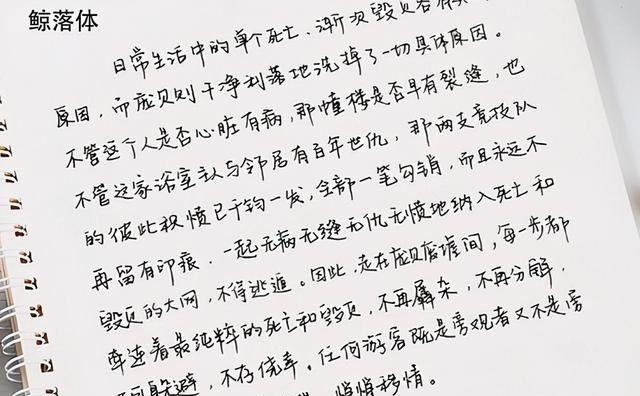 鲸落体
日常生活中的单个死亡、渐次毁灭各有
原因,而庞贝则干净利落地洗掉了一切具体原因。
不管这个人是否心脏有病,那幢楼是否早有裂缝,也
不管这家浴室主人与邻居有百年世仇,那两支竞技队
的彼此积愤已千钧一发,全部一笔勾销,而且永远不
再留有印痕,一起无病无缝无仇无愤地纳入死亡和
毁灭的大网,不得逃遁。因此,走在庞贝废墟间,每一步都
牵连着最纯粹的死亡和毁灭,不再羼杂,不再分解,
躲避,不存侥幸。任何游客既是旁观者又不是旁
悄悄移情。